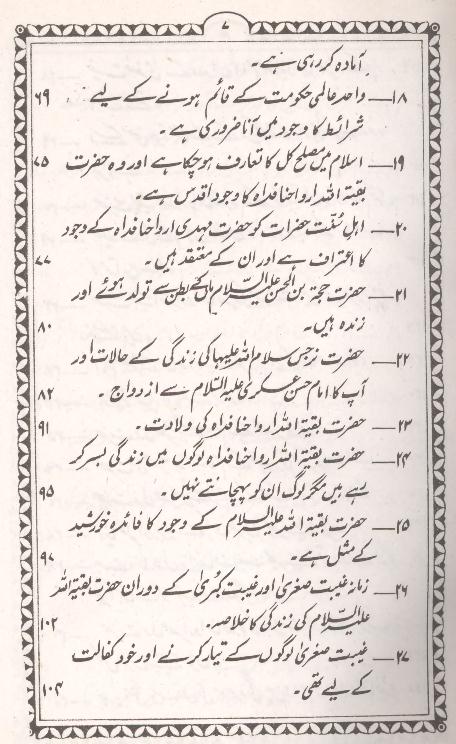 ۷
آمادہ کر رہی ہے۔
۱۸— واحد عالمی حکومت کے قائم ہونے کے لیے
شرائط کا وجود میں آنا ضروری ہے۔ ۶۹
۱۹— اسلام میں مصلح کل کا تعارف ہوچکا ہے اور وہ حضرت ۷۵
بقیۃ اللہ ارواحنا فداہ کا وجود اقدس ہے۔
۲۰— اہل سنّت حضرات کو حضرت مہدی ارواحنا فداہ کے وجود
کا اعتراف ہے اور ان کے معتقد ہیں۔ ۷۷
۲۱— حضرت حجۃ بن الحسن علیہ السلام ماں کے بطن سے تولد ہوئے اور
زندہ ہیں۔ ۸۰
۲۲— حضرت نرجس سلام اللہ علیہا کی زندگی کے حالات اور
آپ کا امام حسن عسکری علیہ السلام سے ازدواج۔ ۸۲
۲۳— حضرت بقیۃ اللہ ارواحنا فداہ کی ولادت۔ ۹۱
۲۴— حضرت بقیۃ اللہ ارواحنا فداہ لوگوں میں زندگی بسر کر
رہے ہیں مگر لوگ ان کو پہچانتے نہیں۔ ۹۵
۲۵— حضرت بقیۃ اللہ علیہ السلام کے وجود کا فائدہ خورشید
کے مثل ہے۔ ۹۷
۲۶— زمانہ غیبت صغریٰ اور غیبت کبریٰ کے دوران حضرت بقیۃ اللہ
علیہ السلام کی زندگی کا خلاصہ۔ ۱۰۲
۲۷— غیبت صغریٰ لوگوں کے تیار کرنے اور خود کفالت
کے لیے تھی۔ ۱۰۴